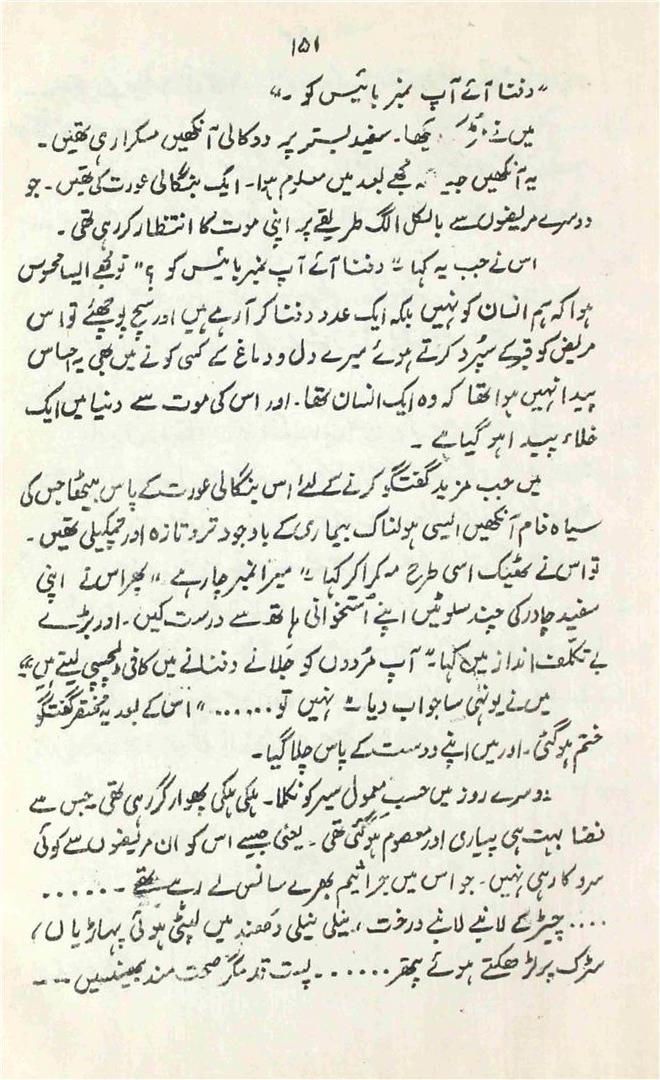 ۱۵۱
"دفنا آئے آپ نمبر بائیس کو۔"
میں نے دیکھا۔ سفید بستر پر دو کالی آنکھیں مسکرا رہی تھیں۔
یہ آنکھیں جیسا کہ مجھے بعد میں معلوم ہوا۔ ایک بنگالی عورت کی تھیں۔ جو
دوسرے مریضوں سے بالکل الگ طریقے پر اپنی موت کا انتظار کر رہی تھی۔
اس نے جب یہ کہا "دفنا آئے آپ نمبر بائیس کو ؟" تو مجھے ایسا محسوس
ہوا کہ ہم انسان کو نہیں بلکہ ایک عدد دفنا کر آ رہے ہیں اور سچ پوچھئے تو اس
مریض کو قبر کے سپرد کرتے ہوئے میرے دل و دماغ کے کسی کونے میں بھی یہ احساس
پیدا نہیں ہوا تھا کہ وہ ایک انسان تھا۔ اور اس کی موت سے دنیا میں ایک
خلاء پیدا ہو گیا ہے۔
میں جب مزید گفتگو کرنے کے لئے اس بنگالی عورت کے پاس بیٹھا جس کی
سیاہ فام آنکھیں ایسی ہولناک بیماری کے باوجود تر و تازہ اور چمکیلی تھیں۔
تو اس نے ٹھیک اسی طرح مسکرا کر کہا "میرا نمبر چار ہے" پھر اس نے اپنی
سفید چادر کی چند سلوٹیں اپنے اُستخوانی ہاتھ سے درست کیں۔ اور بڑے
بے تکلف انداز میں کہا "آپ مُردوں کو جلانے دفنانے میں کافی دلچسپی لیتے ہیں"
میں نے یونہی سا جواب دیا "نہیں تو......" اس کے بعد یہ مختصر گفتگو
ختم ہو گئی۔ اور میں اپنے دوست کے پاس چلا گیا۔
دوسرے روز میں حسبِ معمول سیر کو نکلا۔ ہلکی ہلکی پھوار گر رہی تھی۔ جس سے
فضا بہت ہی پیاری اور معصوم ہو گئی تھی۔ یعنی جیسے اس کو ان مریضوں سے کوئی
سروکار ہی نہیں۔ جو اس میں جراثیم بھرے سانس لے رہے تھے۔......
.... چیڑ کے لانبے لانبے درخت، نیلی نیلی دُھند میں لپٹی ہوئی پہاڑیاں،
سڑک پر لڑھکتے ہوئے پتھر...... پست قد مگر صحت مند بھینسیں۔۔۔